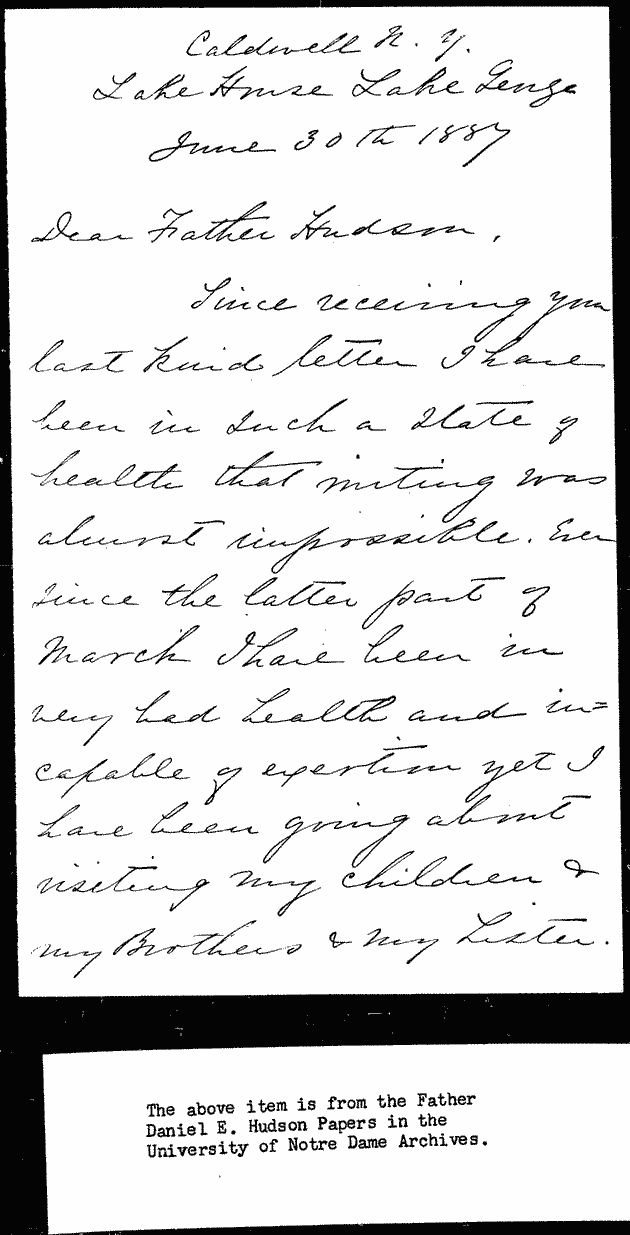 Caldwell N. Y.
Lake House Lake George
June 30th 1887
Dear Father Hudson,
Since receiving your
last kind letter I have
been in such a state of
health that writing was
almost impossible. Ever
since the latter part of
March I have been in
very bad health and in=
capable of exertion yet I
have been going about
visiting my children &
my Brothers & my Sister.
The above item is from the Father
Daniel E. Hudson Papers in the
University of Notre Dame Archives.